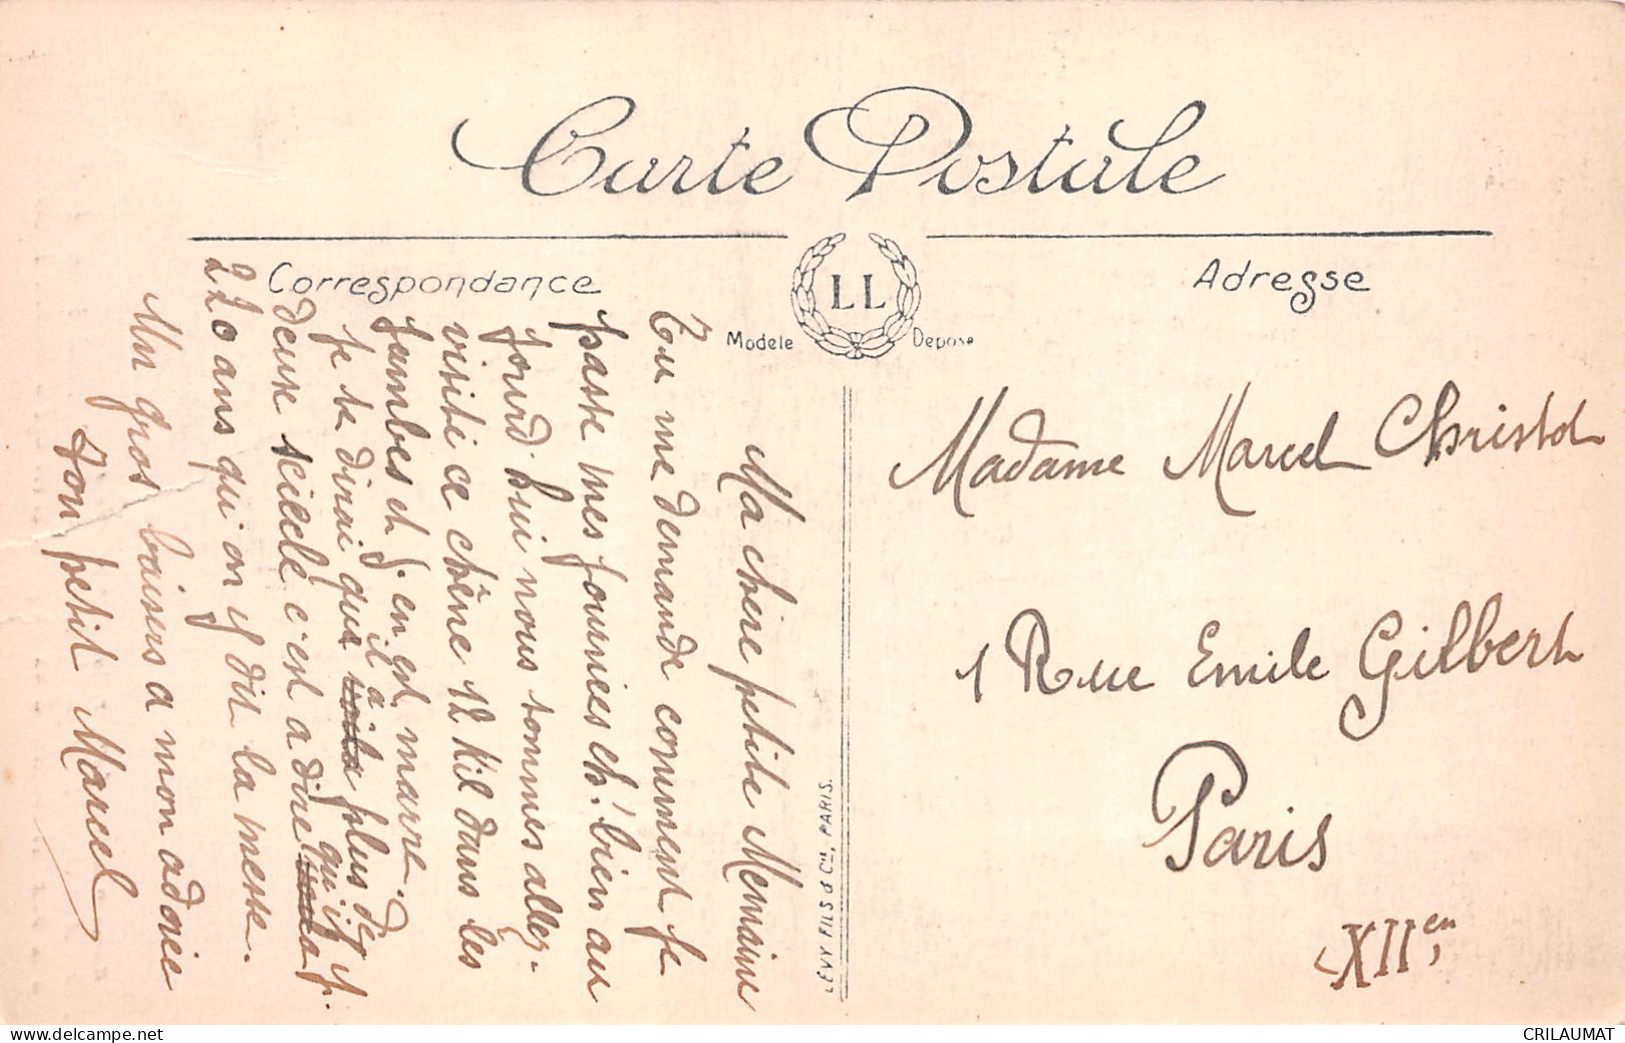 Carte Postale
Correspondance
LL
Modele Deposé
Adresse
Ma chère petite
Tu me demande comment je
passe mes journées eh! bien au
jourd. hui nous sommes allez.
visité ce chêne 12 kil dans les
jambes et j. en est marre.
Je te dirai que il a plus d
deux sciecle c'est a dire qu'il y
220 ans qui on y dit la messe.
Un gros baisers a mon adorée
ton petit Marcel
LEVY FILS & Cie, PARIS.
Madame Marcel Christol
1 Rue Emile Gilbert
Paris
XIIen
delcampe.net
CRILAUMAT